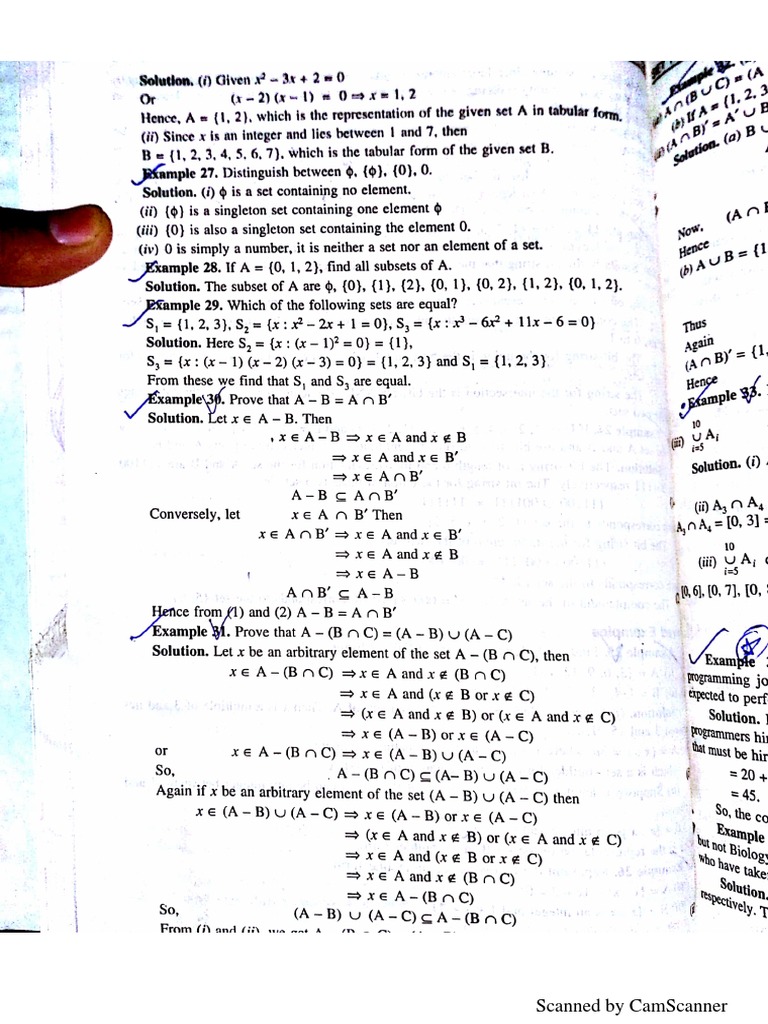 Solution. (i) Given x² – 3x + 2 = 0
Or (x – 2) (x – 1) = 0 ⇒ x = 1, 2
Hence, A = {1, 2}, which is the representation of the given set A in tabular form.
(ii) Since x is an integer and lies between 1 and 7, then
B = {1, 2, 3, 4, 5, 6, 7}, which is the tabular form of the given set B.
Example 27. Distinguish between ϕ, {ϕ}, {0}, 0.
Solution. (i) ϕ is a set containing no element.
(ii) {ϕ} is a singleton set containing one element ϕ
(iii) {0} is also a singleton set containing the element 0.
(iv) 0 is simply a number, it is neither a set nor an element of a set.
Example 28. If A = {0, 1, 2}, find all subsets of A.
Solution. The subset of A are ϕ, {0}, {1}, {2}, {0, 1}, {0, 2}, {1, 2}, {0, 1, 2}.
Example 29. Which of the following sets are equal?
S₁ = {1, 2, 3}, S₂ = {x : x² – 2x + 1 = 0}, S₃ = {x : x³ – 6x² + 11x – 6 = 0}
Solution. Here S₂ = {x : (x – 1)² = 0} = {1},
S₃ = {x : (x – 1) (x – 2) (x – 3) = 0} = {1, 2, 3} and S₁ = {1, 2, 3}
From these we find that S₁ and S₃ are equal.
Example 30. Prove that A – B = A ∩ B′
Solution. Let x ∈ A – B. Then
x ∈ A – B ⇒ x ∈ A and x ∉ B
⇒ x ∈ A and x ∈ B′
⇒ x ∈ A ∩ B′
A – B ⊆ A ∩ B′
Conversely, let x ∈ A ∩ B′ Then
x ∈ A ∩ B′ ⇒ x ∈ A and x ∈ B′
⇒ x ∈ A and x ∉ B
⇒ x ∈ A – B
A ∩ B′ ⊆ A – B
Hence from (1) and (2) A – B = A ∩ B′
Example 31. Prove that A – (B ∩ C) = (A – B) ∪ (A – C)
Solution. Let x be an arbitrary element of the set A – (B ∩ C), then
x ∈ A – (B ∩ C) ⇒ x ∈ A and x ∉ (B ∩ C)
⇒ x ∈ A and (x ∉ B or x ∉ C)
⇒ (x ∈ A and x ∉ B) or (x ∈ A and x ∉ C)
⇒ x ∈ (A – B) or x ∈ (A – C)
or x ∈ A – (B ∩ C) ⇒ x ∈ (A – B) ∪ (A – C)
So, A – (B ∩ C) ⊆ (A – B) ∪ (A – C)
Again if x be an arbitrary element of the set (A – B) ∪ (A – C) then
x ∈ (A – B) ∪ (A – C) ⇒ x ∈ (A – B) or x ∈ (A – C)
⇒ (x ∈ A and x ∉ B) or (x ∈ A and x ∉ C)
⇒ x ∈ A and (x ∉ B or x ∉ C)
⇒ x ∈ A and x ∉ (B ∩ C)
⇒ x ∈ A – (B ∩ C)
So, (A – B) ∪ (A – C) ⊆ A – (B ∩ C)
From (i) and (ii), we get A
A ∩ (B ∪ C) = (A
(b) If A = {1, 2, 3
(A ∩ B)′ = A′ ∪ B
Solution. (a) B ∪
(A ∩ B
Now,
Hence
(b) A ∪ B = {1
Thus
Again
(A ∩ B)′ = {1,
Hence
Example 33.
10
(iii) ∪ Aᵢ
i=5
Solution. (i)
(ii) A₃ ∩ A₄
A₃ ∩ A₄ = [0, 3] =
10
(iii) ∪ Aᵢ
i=5
[0, 6], [0, 7], [0,
Example
programming jo
expected to perf
Solution.
programmers hir
that must be hir
= 20 +
= 45.
So, the co
Example
but not Biology
who have take
Solution.
respectively. T
Scanned by CamScanner